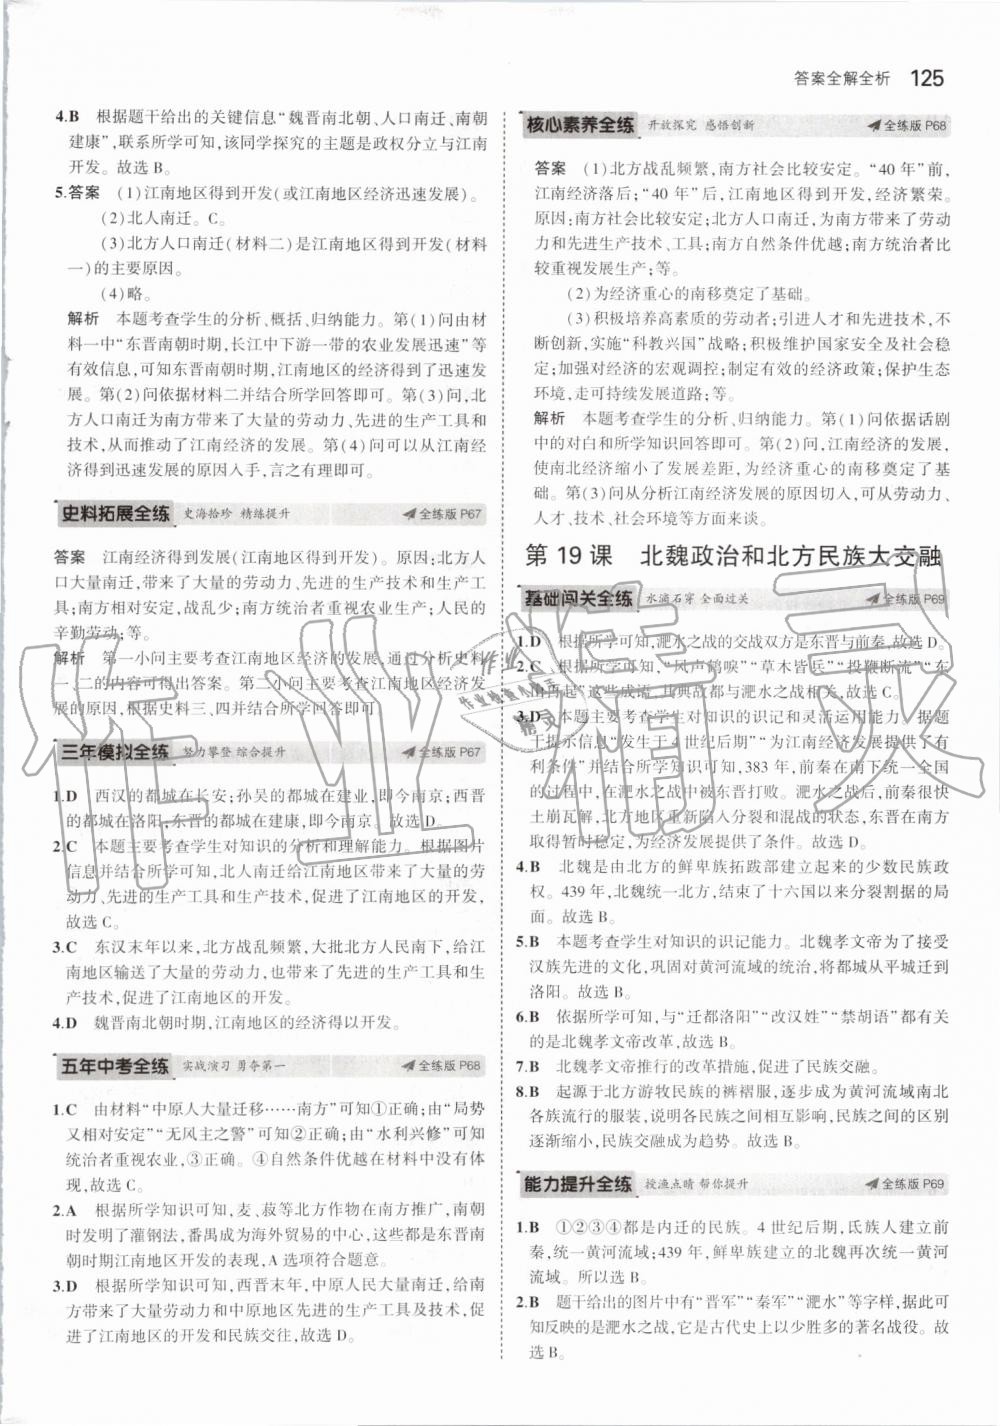 答案全解全析 125
4.B 根据题干给出的关键信息“魏晋南北朝、人口南迁、南朝
建康”,联系所学可知,该同学探究的主题是政权分立与江南
开发。故选 B。
5.答案 (1)江南地区得到开发(或江南地区经济迅速发展)。
(2)北人南迁。C。
(3)北方人口南迁(材料二)是江南地区得到开发(材料
一)的主要原因。
(4)略。
解析 本题考查学生的分析、概括、归纳能力。第(1)问由材
料一中“东晋南朝时期,长江中下游一带的农业发展迅速”等
有效信息,可知东晋南朝时期,江南地区的经济得到了迅速发
展。第(2)问依据材料二并结合所学回答即可。第(3)问,北
方人口南迁为南方带来了大量的劳动力、先进的生产工具和
技术,从而推动了江南经济的发展。第(4)问可以从江南经
济得到迅速发展的原因入手,言之有理即可。
史料拓展全练 史海拾珍 精练提升 全练版 P67
答案 江南经济得到发展(江南得到开发)。原因:北方人
口大量南迁,带来了大量的劳动力、先进的生产技术和生产工
具;南方社会安定,战乱少;南方统治者重视农业生产;人民的
辛勤劳动;等。
解析 第一小问主要考查江南地区经济的发展,通过分析史料
一、二的内容可得出答案。第二小问主要考查江南地区经济发
展的原因,根据史料三、四并结合所学回答即可
三年模拟全练 努力攀登 综合提升 全练版 P67
1.D 西汉的都城在长安;孙吴的都城在建业,即今南京;西晋
的都城在洛阳;东晋的都城在建康,即今南京。故选 D。
2.C 本题主要考查学生对知识的分析和理解能力。根据图片
信息并结合所学可知,北人南迁给江南地区带来了大量的劳
动力、先进的生产工具和生产技术,促进了江南地区的开发,
故选 C。
3.C 东汉末年以来,北方战乱频繁,大批北方人民南下,给江
南地区输送了大量的劳动力,也带来了先进的生产工具和生
产技术,促进了江南地区的开发。
4.D 魏晋南北朝时期,江南地区的经济得以开发。
五年中考全练 实战演习 勇夺第一 全练版 P68
1.C 由材料“中原人大量迁移……南方”可知①正确;由“局势
又相对安定”“无风主之警”可知②正确;由“水利兴修”可知
统治者重视农业,③正确。④自然条件优越在材料中没有体
现,故选 C。
2.A 根据所学知识可知,麦、菽等北方作物在南方推广,南朝
时发明了灌钢法,番禺成为海外贸易的中心,这些都是东晋南
朝时期江南地区开发的表现,A 选项符合题意。
3.D 根据所学知识可知,西晋末年,中原人民大量南迁,给南
方带来了大量劳动力和中原地区先进的生产工具及技术,促
进了江南地区的开发和民族交往,故选 D。
核心素养全练 开放探究 感悟创新 全练版 P68
答案 (1)北方战乱频繁,南方社会比较安定。“40 年”前,
江南经济落后;“40 年”后,江南得到开发,经济繁荣。
原因:南方社会比较安定;北方人口南迁,为南方带来了劳动
力和先进生产技术、工具;南方自然条件优越;南方统治者比
较重视发展生产;等。
(2)为经济重心的南移奠定了基础。
(3)积极培养高素质的劳动者;引进人才和先进技术,不
断创新,实施“科教兴国”战略;积极维护国家安全及社会稳
定;加强对经济的宏观调控;制定有效的经济政策;保护生态
环境,走可持续发展道路;等。
解析 本题考查学生的分析、归纳能力。第(1)问依据话剧
中的对白和所学知识回答即可。第(2)问,江南经济的发展,
使南北经济缩小了发展差距,为经济重心的南移奠定了基
础。第(3)问从分析江南经济发展的原因切入,可从劳动力、
人才、技术、社会环境等方面来谈。
第 19 课 北魏政治和北方民族大交融
基础闯关全练 水滴石穿 全面过关 全练版 P69
1.D 根据所学可知,淝水之战的交战双方是东晋与前秦,故选 D。
2.C 根据所学可知,“风声鹤唳”“草木皆兵”“投鞭断流”“东
山再起”这些成语,其典故都与淝水之战有关,故选 C。
3.D 本题主要考查学生对知识的识记和灵活运用能力。据题
干提示信息“发生于 4 世纪后期”“为江南经济发展提供了有
利条件”并结合所学知识可知,383 年,前秦在南下统一全国
的过程中,在淝水之战中被东晋打败。淝水之战后,前秦很快
土崩瓦解,北方地区重新陷入分裂和混战的状态,东晋在南方
取得暂时稳定,为经济发展提供了条件。故选 D。
4.B 北魏是由北方的鲜卑族拓跋部建立起来的少数民族政
权。439 年,北魏统一北方,结束了十六国以来分裂割据的局
面。故选 B。
5.B 本题考查学生对知识的识记能力。北魏孝文帝为了接受
汉族先进的文化,巩固对黄河流域的统治,将都城从平城迁到
洛阳。故选 B。
6.B 依据所学可知,与“迁都洛阳”“改汉姓”“禁胡语”都有关
的是北魏孝文帝改革,故选 B。
7.B 北魏孝文帝推行的改革措施,促进了民族交融。
8.B 起源于北方游牧民族的裤褶服,逐步成为黄河流域南北
各族流行的服装,说明各民族之间相互影响,民族之间的区别
逐渐缩小,民族交融成为趋势。故选 B。
能力提升全练 授渔点睛 帮你提升 全练版 P69
1.B ①②③④都是内迁的民族。4 世纪后期,氐族人建立前
秦,统一黄河流域;439 年,鲜卑族建立的北魏再次统一黄河
流域。所以选 B。
2.B 题干给出的图片中有“晋军”“秦军”“淝水”等字样,据此可
知反映的是淝水之战,它是古代史上以少胜多的著名战役。故
选 B。
作业精灵
作业检查小能手